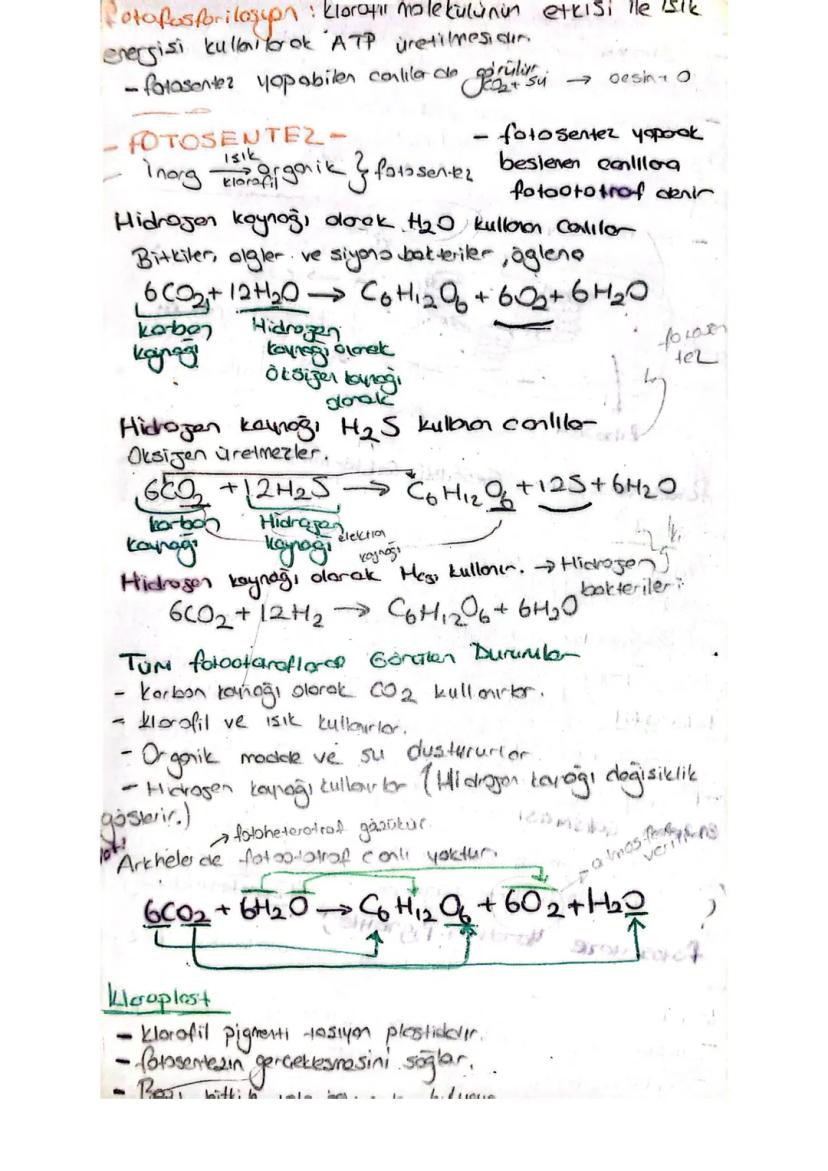 Fotofosforilasyon : klorofil molekülünün etkisi ile ışık
energisi kullanılarak ATP üretilmesidir.
- fotosentez yapabilen canlılarda görülür
CO2 + su → besin + O
- FOTOSENTEZ -
İnorg ışık→klorofil organik } fotosentez
- fotosentez yaparak
beslenen canlılara
fotoototraf denir
Hidrojen kaynağı olarak H2O kullanan canlılar
Bitkiler, algler ve siyano bakteriler, öglena
6CO2 + 12H2O → C6H12O6 + 6O2 + 6H2O
karbon
kaynağı
Hidrojen
kaynağı olarak
Oksijen kaynağı
olarak
Hidrojen kaynağı H2S kullanan canlılar
Oksijen üretmezler.
6CO2 + 12H2S → C6H12O6 + 12S + 6H2O
karbon
kaynağı
Hidrojen
kaynağı
elektron
kaynağı
Hidrojen kaynağı olarak kullanır. → Hidrojen
bakterileri
6CO2 + 12H2 → C6H12O6 + 6H2O
Tüm fotootoroflarda Görülen Durumlar
- karbon kaynağı olarak CO2 kullanırlar.
- klorofil ve ışık kullanırlar.
- Organik madde ve su oluştururlar
- Hidrojen kaynağı kullanırlar (Hidrojen kaynağı değişiklik
gösterir.)
→ fotoheterotraf gözükür.
Not: Arkhelerde fotoototraf canlı yoktur.
atmosfere
verilir
6CO2 + 6H2O → C6H12O6 + 6O2 + H2O
Kloroplast
- klorofil pigmenti taşıyan plastiddir.
- fotosentezin gerçekleşmesini sağlar.
- Bazı